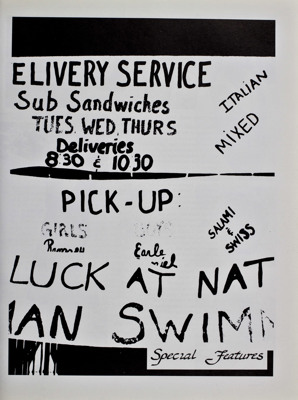 ELIVERY SERVICE
Sub Sandwiches
TUES. WED. THURS
Deliveries
8:30 & 10:30
ITALIAN
MIXED
PICK-UP:
GIRLS
Earle
SALAMI
&
SWISS
LUCK AT NAT
IAN SWIMM
Special Features